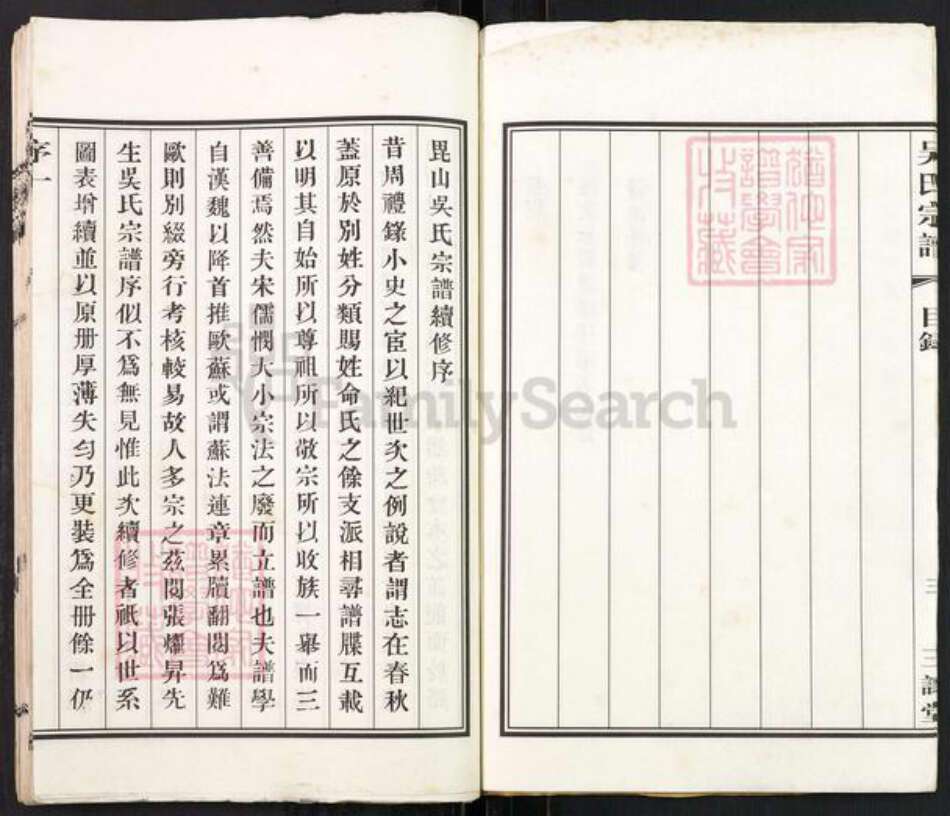 吳氏宗譜
目錄
三
三讓堂
毘山吳氏宗譜續修序
昔周禮錄小史之宦以紀世次之例說者謂志在春秋
蓋原於別姓分類賜姓命氏之餘支派相尋譜牒互載
以明其自始所以尊祖所以敬宗所以收族一舉而三
善備焉然夫宋儒憫大小宗法之廢而立譜也夫譜學
自漢魏以降首推歐蘇或謂蘇法連章累牘翻閱爲難
歐則別綴旁行考核較易故人多宗之茲閱張燿昇先
生吳氏宗譜序似不爲無見惟此次續修者祇以世系
圖表增續並以原册厚薄失勻乃更裝爲全册餘一仍
序
一
FamilySearch